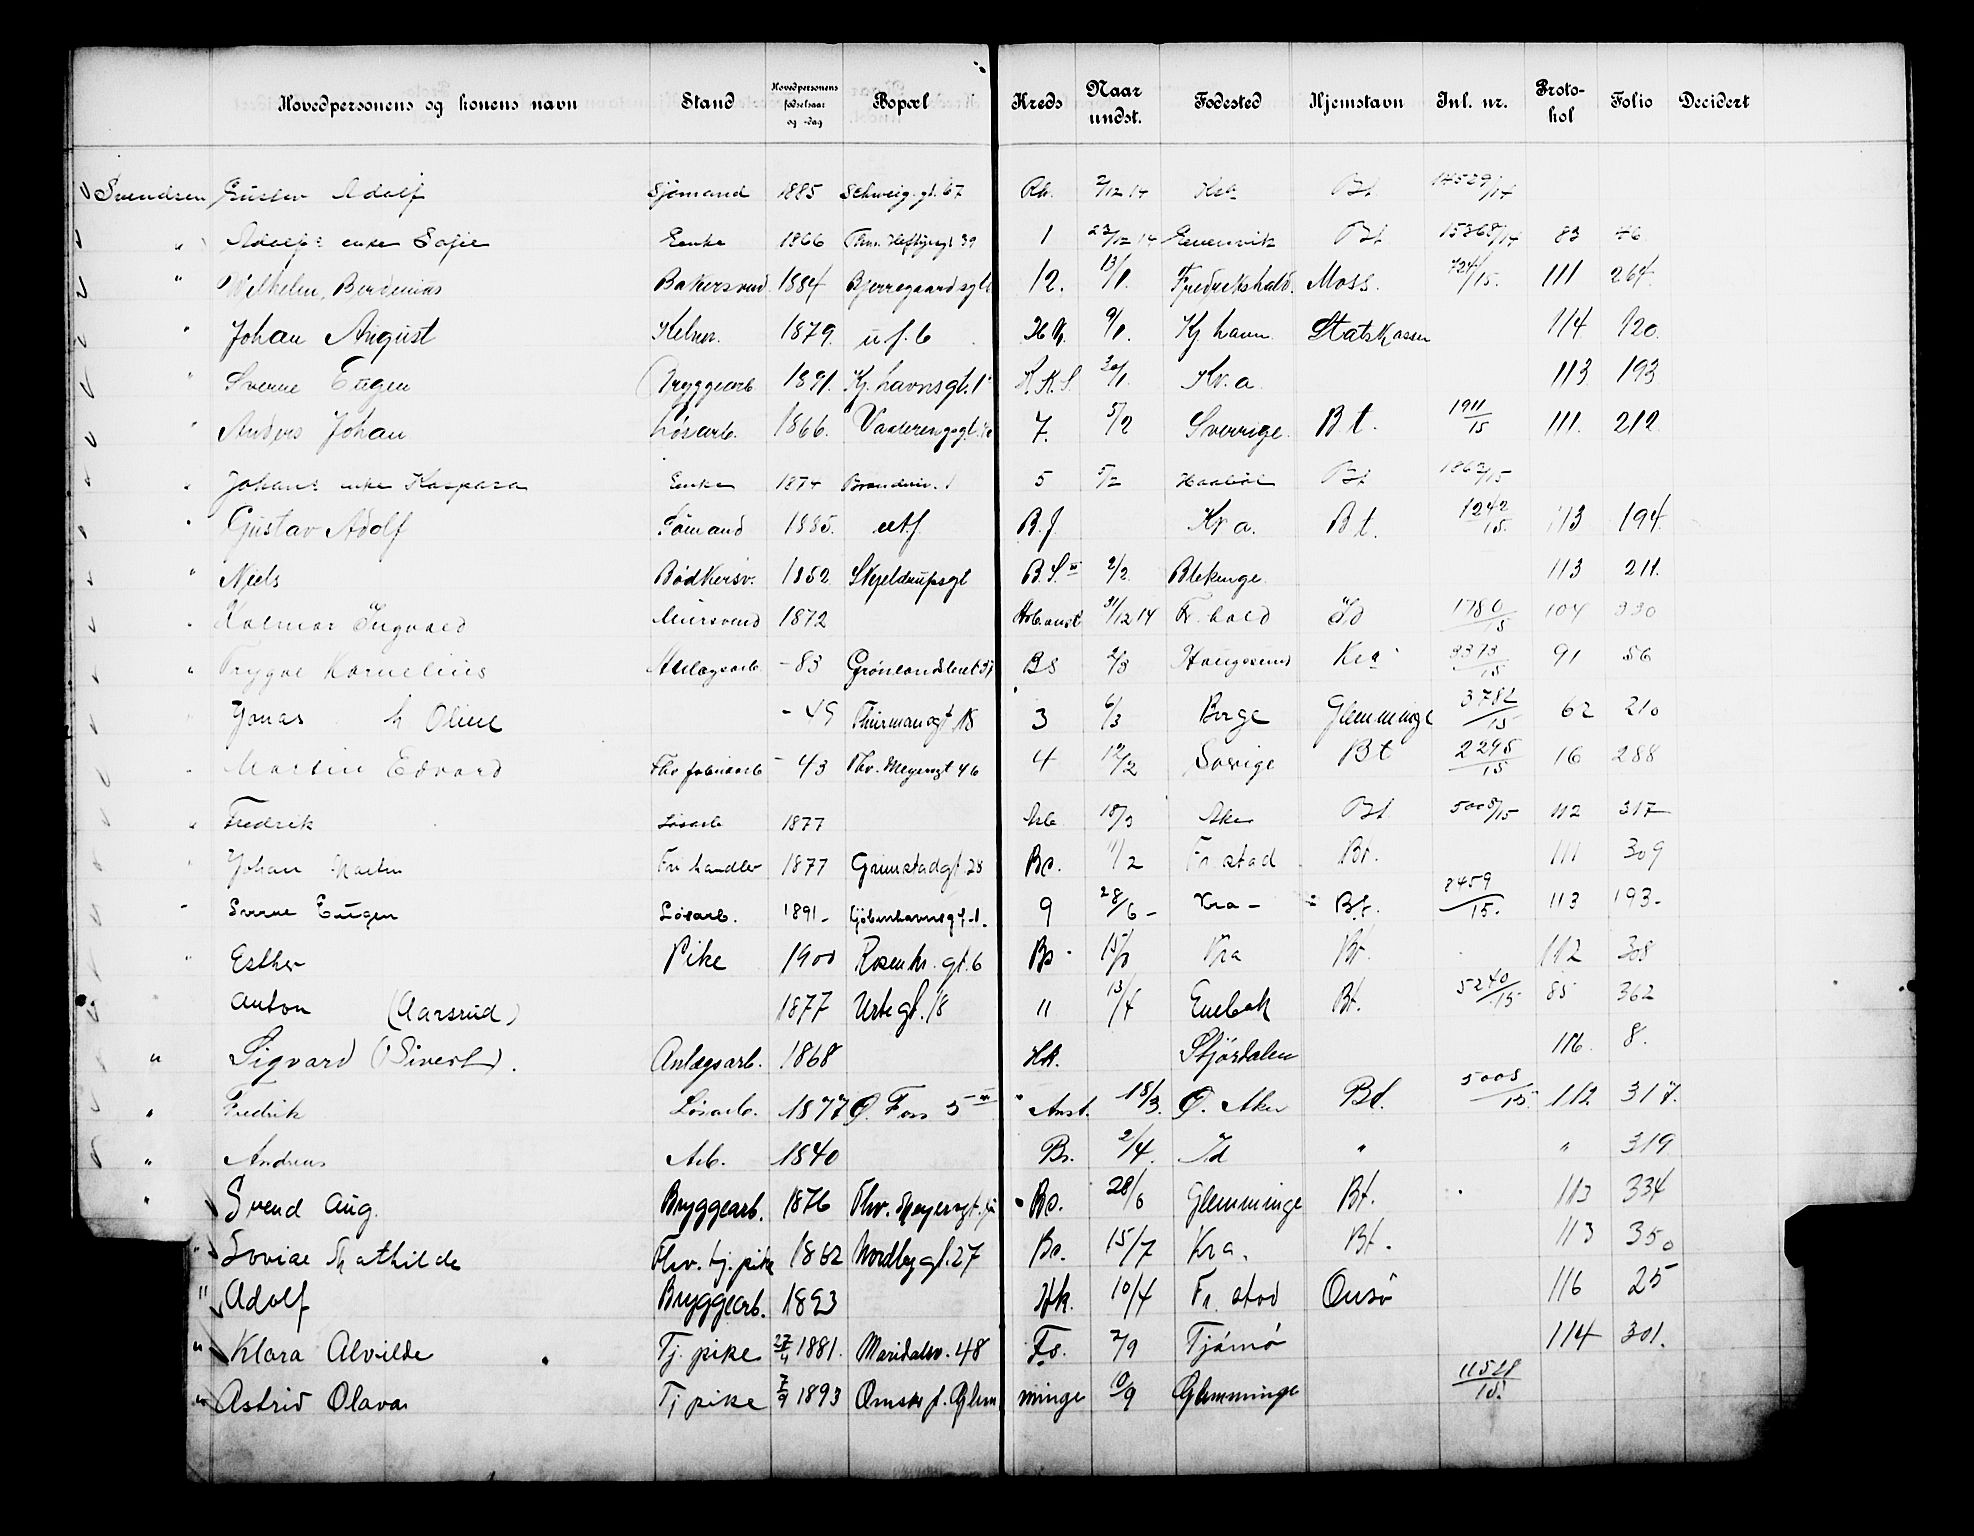 Hovedpersonens og konens navn | Stand | Hovedpersonens fødselsaar og -dag | Bopæl | Kreds | Naar undst. | Fødested | Hjemstavn | Inl. nr. | Protokol | Folio | Decidert
Svendsen Gustav Adolf | Sjømand | 1885 | Schweig. gt. 67 | | 2/12 14 | Kra | Bt | 14529/14
" Adolfs enke Sofie | Enke | 1866 | Thv. Heftyesgt 39 | 1 | 23/12 14 | | Bt | 15368/14 | 83 | 46
" Wilhelm | Bakersvend | 1884 | Bjerregaardsgt | 12. | 13/1. | Fredrikshald. | Moss. | 724/15. | 111 | 264.
" Johan August | Kelner. | 1879. | u. f. b | | 9/1. | Kj. havn. | Statskassen | | 114. | 120.
" Sverre Eugen | Bryggearb | 1891. | Kj. havnsgt. 1 | | | Kr.a. | | | 113. | 193
" Anders Johan | Løsarb. | 1866. | Vaalerengsgt. | 7. | 5/2 | Sverrige. | Bt. | 1911/15 | 111. | 212
" Johans enke Kaspara | Enke | 1874 | | 5 | 5/2 | | Bt | 1862/15
" Gustav Adolf | Sömand | 1885. | | B.f. | | Kr a. | Bt. | 1242/15. | 113 | 194.
" Niels | Bødkersv. | 1852 | Skjeldrupsgt | B.S. | 2/2 | Blekinge. | | | 113 | 211.
" Halmar Ingvald | Mursvend | 1872 | | | 31/12 14 | Fr. hald | Id | 1780/15 | 104 | 330
" Trygve Kornelius | Anlægsarb | - 83 | Grønlandsleret 37 | Bs | 2/3 | Haugesund | Kra | 3373/15 | 91 | 56
" Jonas h Oline | | - 49 | Thurmansgt 18 | 3 | 6/3 | Borge | Glemminge | 3782/15 | 62 | 210
" Martin Edvard | Fhv fabrikarb | - 43 | Thv. Meyersgt 46 | 4 | 12/2 | Sverige | Bt | 2295/15 | 16 | 288
" Fredrik | Løsarb | 1877 | | Arb | 18/3 | Aker | Bt | 5008/15 | 112 | 317
" Johan Martin | Fri handler | 1877 | Grimstadgt. 28 | Bs. | 11/2 | Fr. stad | Bt. | | 111 | 309
" Sverre Eugen | Løsarb. | 1891 - | Kjöbenhavnsgt. 1. | 9 | 28/6 - | Kra - | Bt. | 8459/15. | 113 | 193 -
" Esther | Pike | 1900 | Rosenkr. gt. 6 | Bs | | Kra | Bt. | | 112 | 308
Anton (Aarsrud) | | 1877 | Urtegt. 18 | 11 | 13/4 | Enebak | Bt. | 5240/15 | 85 | 362
" Sigvard (Sivert). | Anlægsarb. | 1868 | | Hk. | | Stjørdalen | | | 116. | 8.
" Fredrik | Løsarb. | 1877 | Ø. Foss 5 III | " Anst. | 18/3. | Ø. Aker | Bt. | 5008/15. | 112 | 317.
" Andreas | Arb. | 1840 | | Bs. | 2/4. | Id | " | | " | 319
" Svend Aug. | Bryggearb. | 1876 | Thv. Meyersgt. | Bs. | 28/6 | Glemminge | Bt. | | 113 | 334
" Lovise Mathilde | Fhv. tj. pike | 1862 | Nordbygt. 27 | Bs. | 15/7 | Kra. | Bt. | | 113 | 350
" Adolf | Bryggearb. | 1893 | | Hk. | 10/4 | Fr. stad | Onsø | | 116 | 25
" Klara Alvilde | Tj. pike | 27/4 1881. | Maridalsv. 48 | Fs. | 2/9 | Tjømø | | | 114 | 301.
" Astrid Olava | Tj pike | 7/9 1893 | Omstr. f. Glem | minge | | Glemminge | | 11528/15.